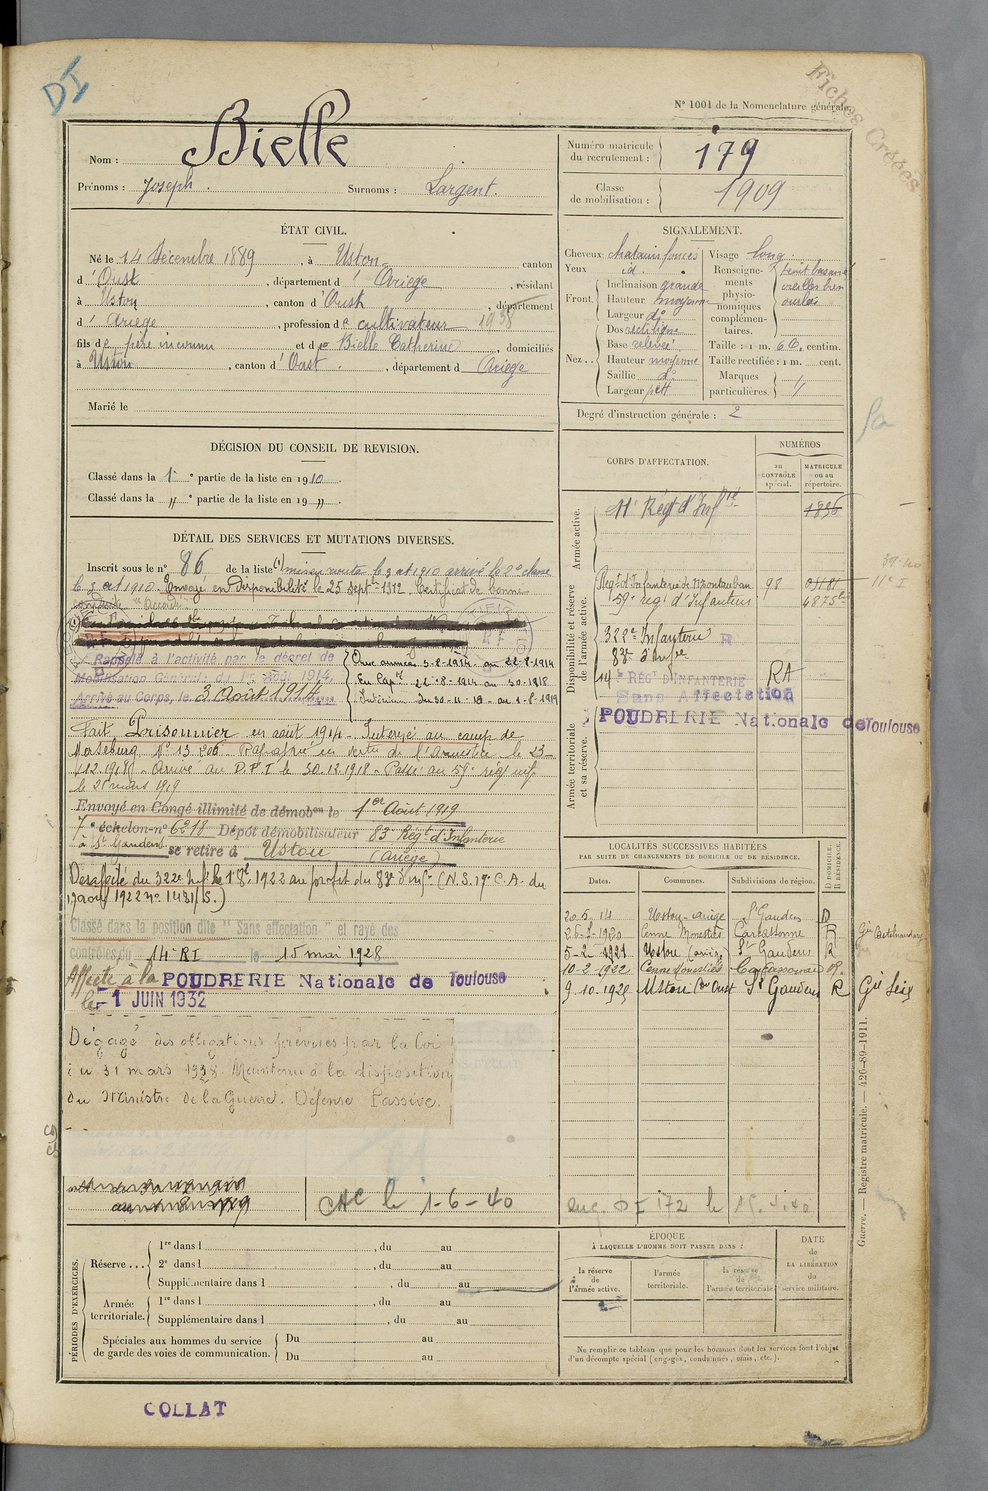 DI
Fiches Créées
N° 1001 de la Nomenclature générale.
Nom : Bielle
Prénoms : Joseph. Surnoms : Sargent.
Numéro matricule du recrutement : 179
Classe de mobilisation : 1909
ÉTAT CIVIL.
Né le 14 Décembre 1889, à Ustou canton
d'Oust, département d'Ariège, résidant
à Ustou, canton d'Oust, département
d'Ariège, profession de cultivateur 1938
fils de père inconnu et de Bielle Catherine, domiciliés
à Ustou, canton d'Oust, département d Ariège
Marié le
SIGNALEMENT.
Cheveux chatains foncés
Yeux id.
Front. Inclinaison grande
Hauteur moyenne
Largeur do
Nez.. Dos rectiligne
Base relevée
Hauteur moyenne
Saillie do
Largeur petit
Visage long.
Renseignements physionomiques complémentaires. teint basané oreilles bien
Taille : 1 m. 66, centim.
Taille rectifiée : 1 m. cent.
Marques particulières. //
Degré d'instruction générale : 2
DÉCISION DU CONSEIL DE REVISION.
Classé dans la 1e partie de la liste en 1910.
Classé dans la " e partie de la liste en 19 ".
DÉTAIL DES SERVICES ET MUTATIONS DIVERSES.
Inscrit sous le n° 86 de la liste (1) mis en route le 3 oct 1910 arrivé le 2e classe
le 3 oct 1910. Envoyé en Disponibilité le 25 septbre 1912 Certificat de bonne
conduite "Accordé"
Rappelé à l'activité par le décret de
Mobilisation Générale du 1er Août 1914.
Arrivé au Corps, le 3 Août 1914
Aux armées 3-8-1914 au 22-8-1914
En Capté 22-8-1914 au 30-1918
Intérieur Du 30-11-18 au 1-8-1919
Fait Prisonnier en août 1914 - Interné au camp de
Merseburg N° 13 206 Rapatrié en vertu de l'Armistice le 23
12.1918. Arrivé au D.P.I le 30.12.1918. Passé au 59e régt inf
le 21 mars 1919
Envoyé en Congé illimité de démobon le 1er Août 1919
7e échelon n° 6218 Dépôt démobilisateur 83e Régt d'Infanterie
à St Gaudens se retire à Ustou (Ariège)
Desaffecté du 322e Inf le 1er 1922 au profit du 83e d'inf (N.S. 17e C.A. du
17 août 1922 n° 1481/S.)
Classé dans la position dite "Sans affectation" et rayé des
contrôles du 14e RI le 15 mai 1928
Affecté à la POUDRERIE Nationale de Toulouse
le -1 JUIN 1932
Dégagé des obligations prévues par la loi
du 31 mars 1928. Maintenu à la disposition
du Ministre de la Guerre. Défense Passive.
le 1-6-40
CORPS D'AFFECTATION.
NUMÉROS
au CONTRÔLE spécial.
MATRICULE ou au répertoire.
Armée active.
11e Régt d'Infrie 1836
Disponibilité et réserve de l'armée active.
Regt d'Infanterie de Montauban 98
59e régt d'Infanterie 4875
322e Infanterie R
83e d'Infie
14e RÉGT D'INFANTERIE RA
Sans Affectation
POUDRERIE Nationale de Toulouse
Armée territoriale et sa réserve.
LOCALITÉS SUCCESSIVES HABITÉES
PAR SUITE DE CHANGEMENTS DE DOMICILE OU DE RÉSIDENCE.
Dates. Communes. Subdivisions de région. D DOMICILE. R RÉSIDENCE.
20.5.14 Ustou-Ariège St Gaudens D
26-2-1920 Cenne Monestiés Carcassonne R Gie Castelnaudary
5-2-1921 Ustou (Ariège) St Gaudens R
10-2-1922 Cenne Monestiés Carcassonne R
9.10.1925 Ustou con Oust St Gaudens R Gie Seix
Guerre. — Registre matricule. — 426-89-1911.
PÉRIODES D'EXERCICES.
Réserve... 1re dans l , du au
2e dans l , du au
Supplémentaire dans l , du au
Armée territoriale. 1re dans l , du au
Supplémentaire dans l , du au
Spéciales aux hommes du service de garde des voies de communication. Du au
Du au
ÉPOQUE
À LAQUELLE L'HOMME DOIT PASSER DANS :
la réserve de l'armée active.
l'armée territoriale.
la réserve de l'armée territoriale
DATE de LA LIBÉRATION du service militaire.
Ne remplir ce tableau que pour les hommes dont les services font l'objet
d'un décompte spécial (engagés, condamnés, omis, etc.).
COLLAT